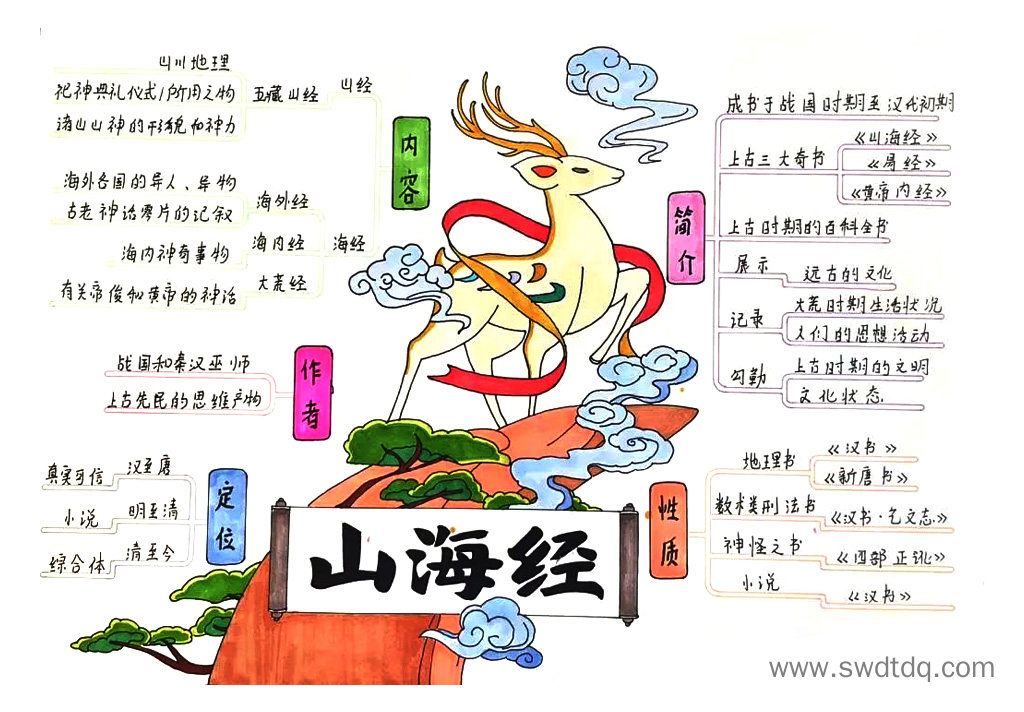 山川地理
祀神典礼仪式/所用之物
诸山山神的形貌和神力
五藏山经
山经
内容
海外各国的异人、异物
古老神话零片的记叙
海外经
海内神奇事物
海内经
海经
有关帝俊和黄帝的神话
大荒经
战国和秦汉巫师
上古先民的思维产物
作者
真实可信
汉至唐
小说
明至清
综合体
清至今
定位
成书于战国时期至汉代初期
上古三大奇书
《山海经》
《易经》
《黄帝内经》
简介
上古时期的百科全书
展示
远古的文化
记录
大荒时期生活状况
人们的思想活动
勾勒
上古时期的文明
文化状态
地理书
《汉书》
《新唐书》
性质
数术类刑法书
《汉书·艺文志》
神怪之书
《四部正讹》
小说
《汉书》
山海经
www.swdtdq.com